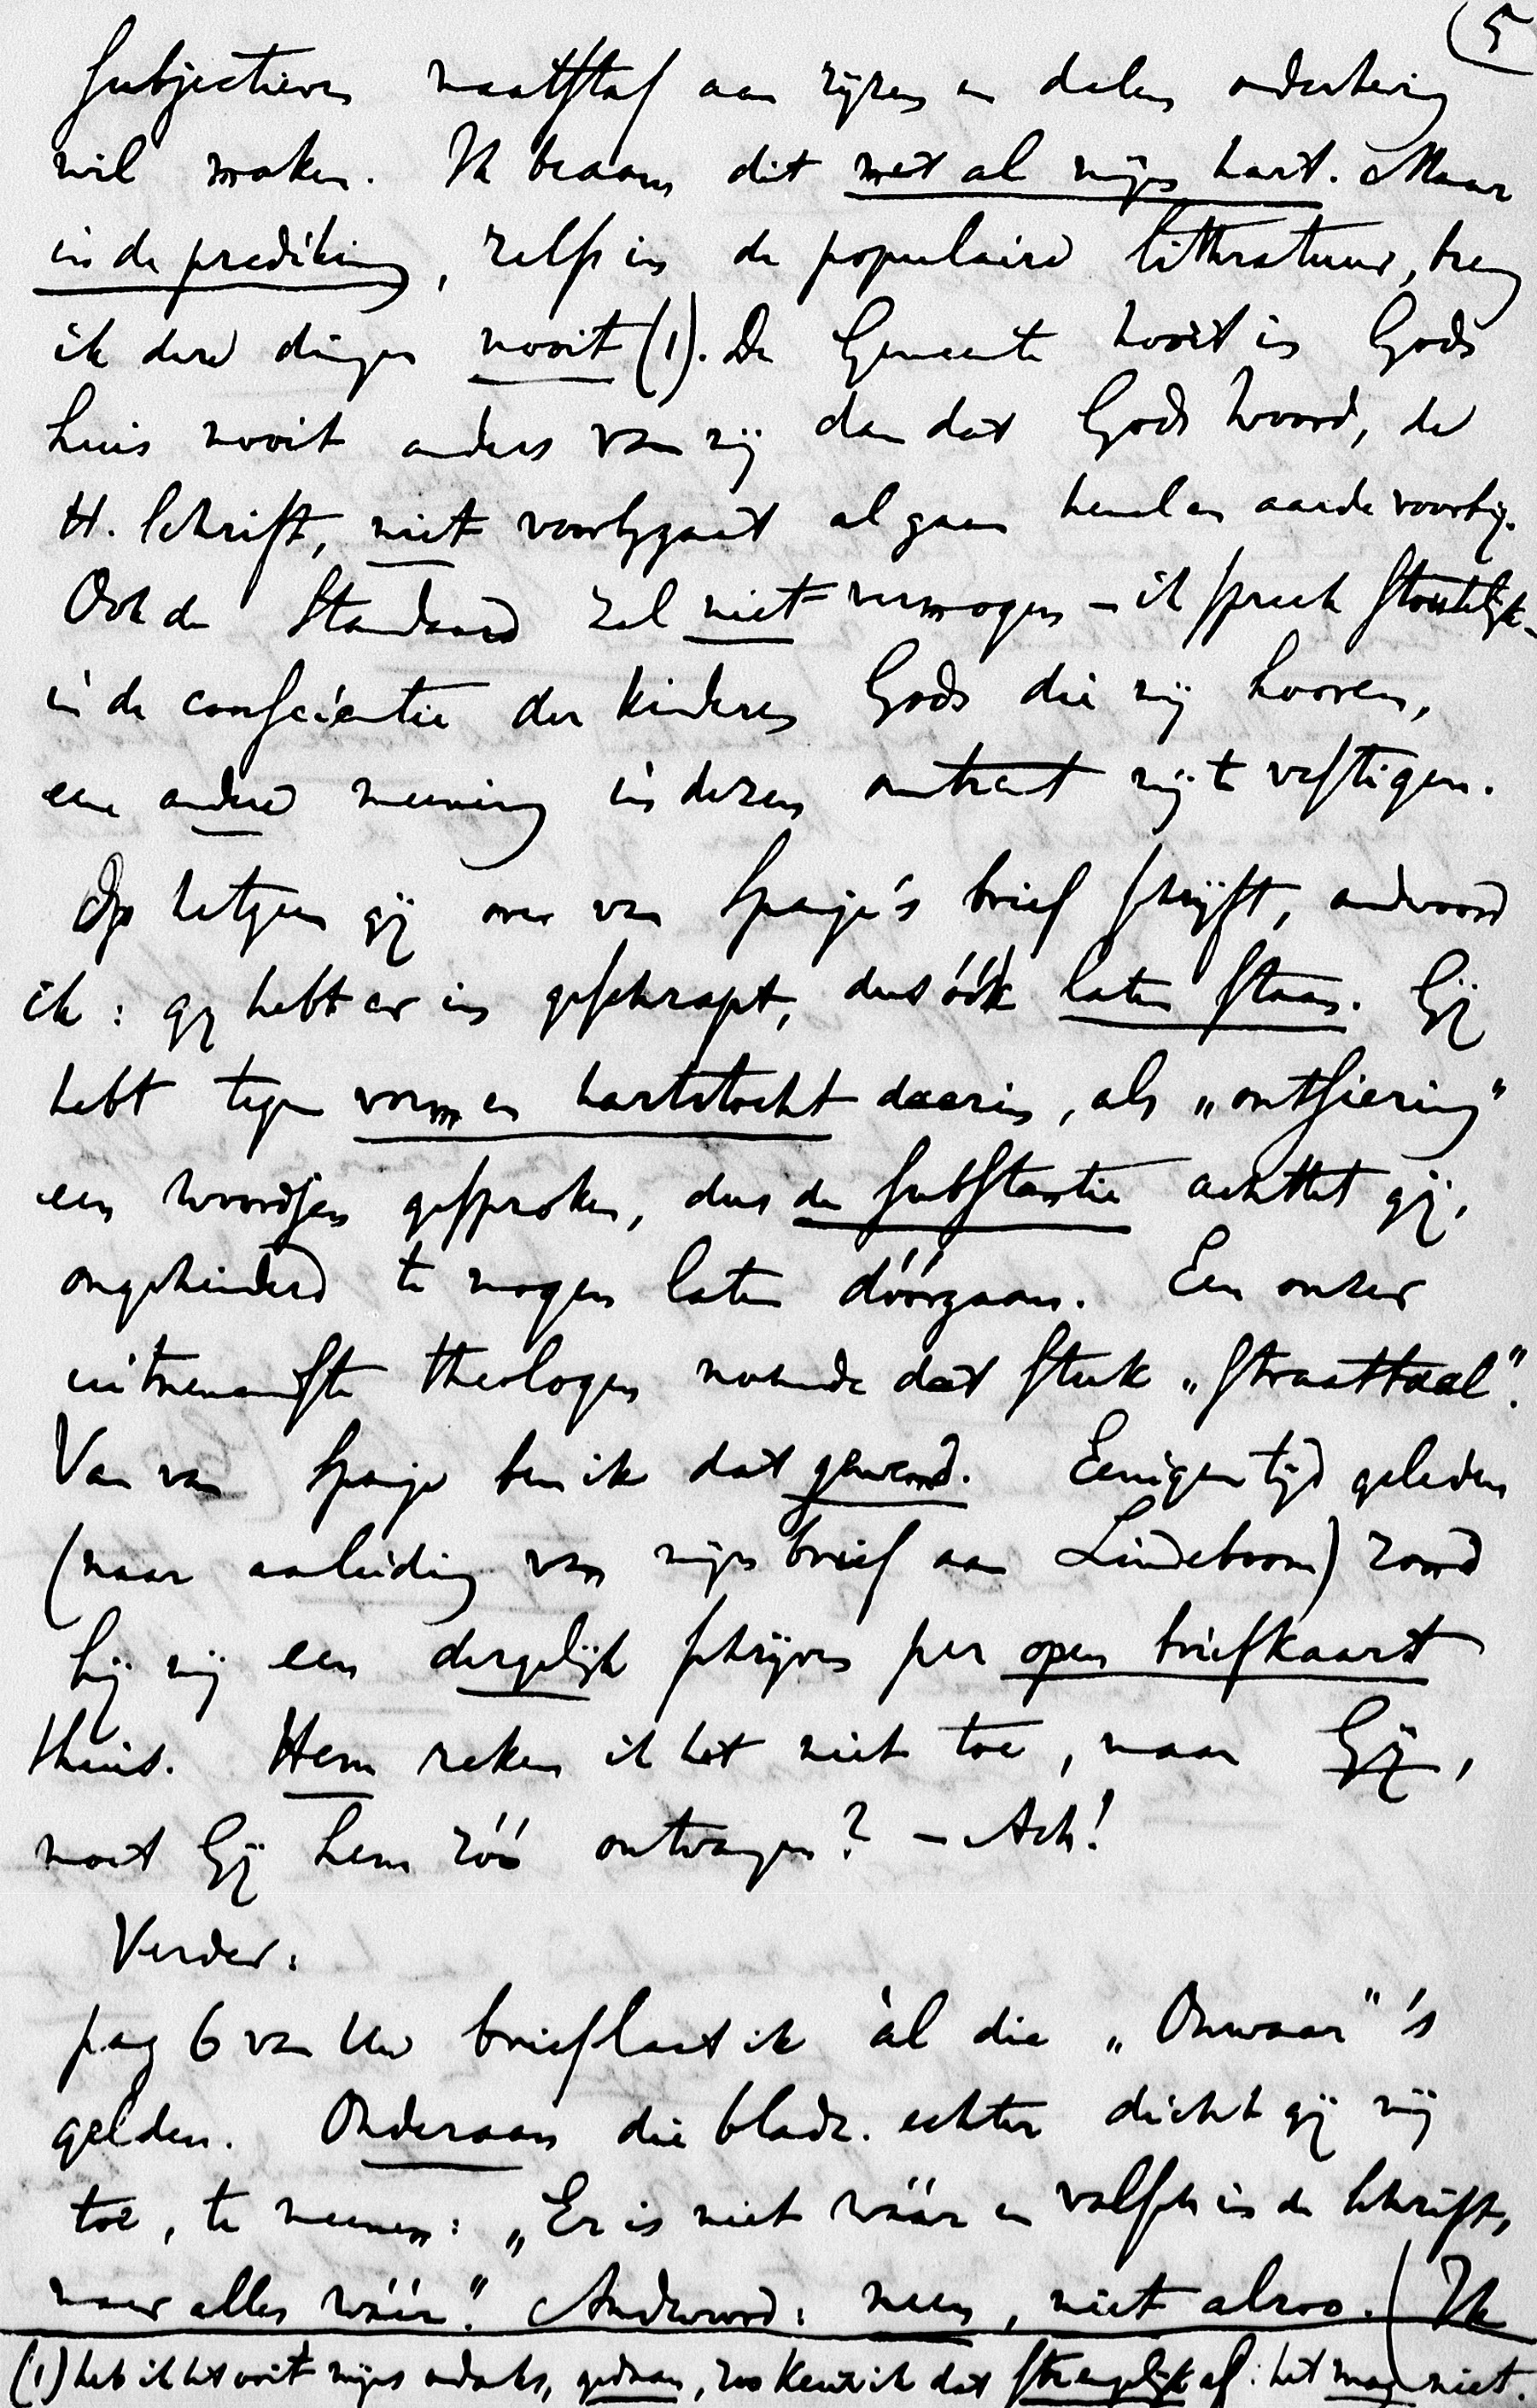 (5
subjectieven maatstaf aan rijzen en dalen onderhevig
wil maken. Ik beaam dit met al mijn hart. Maar
in de prediking, zelfs in de populaire litteratuur, breng
ik deze dingen nooit (1). De Gemeente hoort in Gods
huis nooit anders van mij dan dat Gods Woord, de
H. Schrift, niet voorbijgaat al gaan hemel en aarde voorbij.
Ook de Standaard zal niet vermogen – ik spreek stoutelijk –
in de consciëntie der kinderen Gods die mij hooren,
eene andere meening in dezen omtrent mij te vestigen.
Op hetgeen gij over van Spanje's brief schrijft, andwoord
ik: gij hebt er in geschrapt, dus óók laten staan. Gij
hebt tegen vorm en hartstocht daarin, als „ontsiering"
een woordjen gesproken, dus de substantie achttet gij,
ongehinderd te mogen laten dóórgaan. Een onzer
uitnemendste theologen noemde dat stuk „straattaal".
Van van Spanje ben ik dat gewend. Eenigen tijd geleden
(naar aanleiding van mijn brief aan Lindeboom) zond
hij mij een dergelijk schrijven per open briefkaart
thuis. Hem reken ik het niet toe, maar Gij,
moet Gij hem zóó ontvangen? – Ach!
Verder:
pag 6 van Uw brief laat ik àl die „Onwaar"'s
gelden. Onderaan die bladz. echter dicht gij mij
toe, te meenen: „Er is niet wáár en valsch in de Schrift,
maar alles wáár." Andwoord: neen, niet alzoo. Ik
(1) heb ik het ooit mijns ondanks, gedaan, zoo keur ik dat strengelijk af: het mag niet.